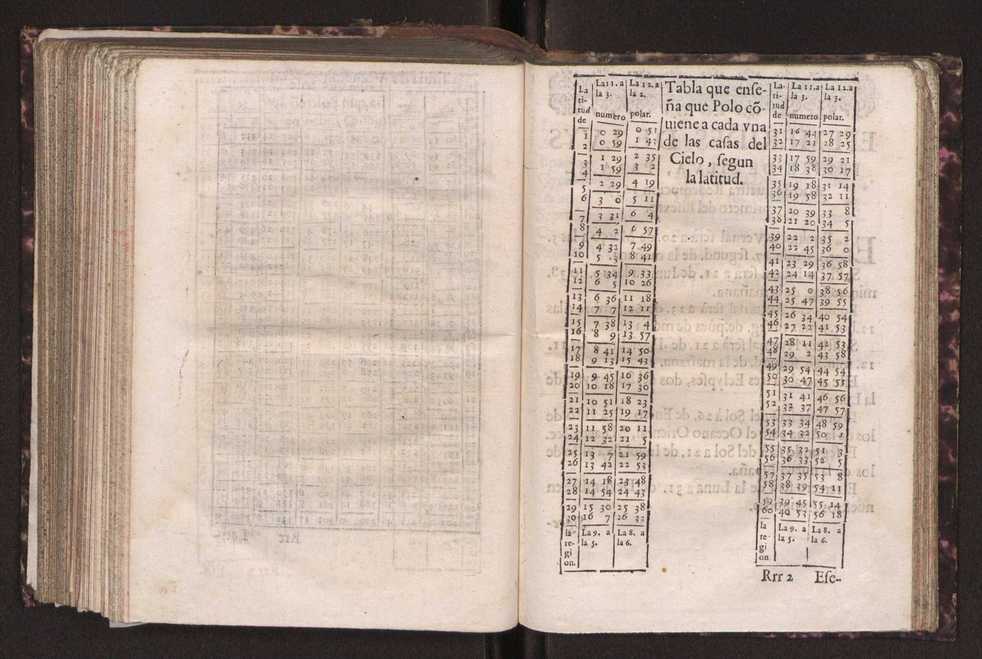 Tabla que enſe-
ña que Polo cō-
uiene a cada vna
de las caſas del
Cielo, ſegun
la latitud.
La La 11. a La 12. a
ti- la 3. la 2.
tud
de numero polar.
1 0 29 0 51
2 0 59 1 43
3 1 29 2 35
4 1 59
5 2 29 4 19
6 3 0 5 11
7 3 31 6 4
8 4 2 6 57
9 4 32 7 49
10 8 41
11 5 34 9 33
12 6 5 10 26
13 6 36 11 18
14 7 7 12 11
15 7 38 13 4
16 8 9 13 57
17 8 41 14 50
18 9 13 15 43
19 9 45 16 36
20 10 18 17 30
21 10 51 18 23
22 11 25 19 17
23 11 58 20 11
24 12 32 21 5
25 13 7 21 59
26 13 42 22 53
27 14 18 23 48
28 14 54 24 43
29 15 30 25 38
30 16 7 26 33
la La 9. a La 8. a
re- la 5. la 6.
gi
on.
La- La 11. a La 12. a
ti- la 3. la 2.
tud
de numero polar.
31 16 44 27 29
32 17 21 28 25
33 17 59 29 21
34 18 38 30 17
35 19 18 31 14
36 19 58 32 11
37 20 39 33 8
38 21 20 34 5
39 22 2 35 2
40 22 45 36 0
41 23 29 36 58
42 24 14 37 57
43 25 0 38 56
44 25 47 39 55
45 26 34 40 54
46 27 22 41 53
47 28 11 42 53
48 29 2 43 58
49 29 54 44 54
50 30 47 45 55
51 31 41 46 56
52 32 37 47 57
53 33 34 48 59
54 34 32 50
55 35 32 51 3
56 36 33 52 5
57 37 35 53 8
58 38 39 54 11
59 39 45 55 14
60 40 53 56 18
la La 9. a La 8. a
re- la 5. la 6.
gi
on
Rrr 2 Eſe-